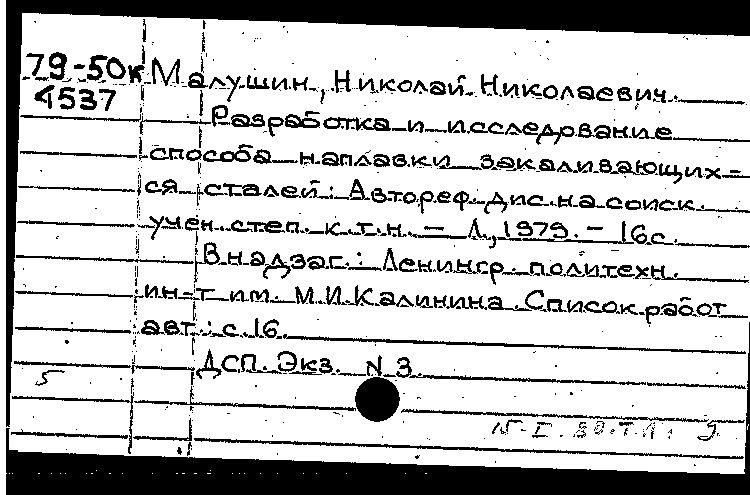 79-50к Малушин, Николай Николаевич.
4537
Разработка и исследование
способа наплавки закаливающих-
ся сталей: Автореф. дис. на соиск.
учен. степ. к.т.н. – Л., 1979. – 16с.
В надзаг.: Ленингр. политехн.
ин-т им. М.И.Калинина. Список работ
авт.: с.16.
ДСП. Экз. N 3.
5